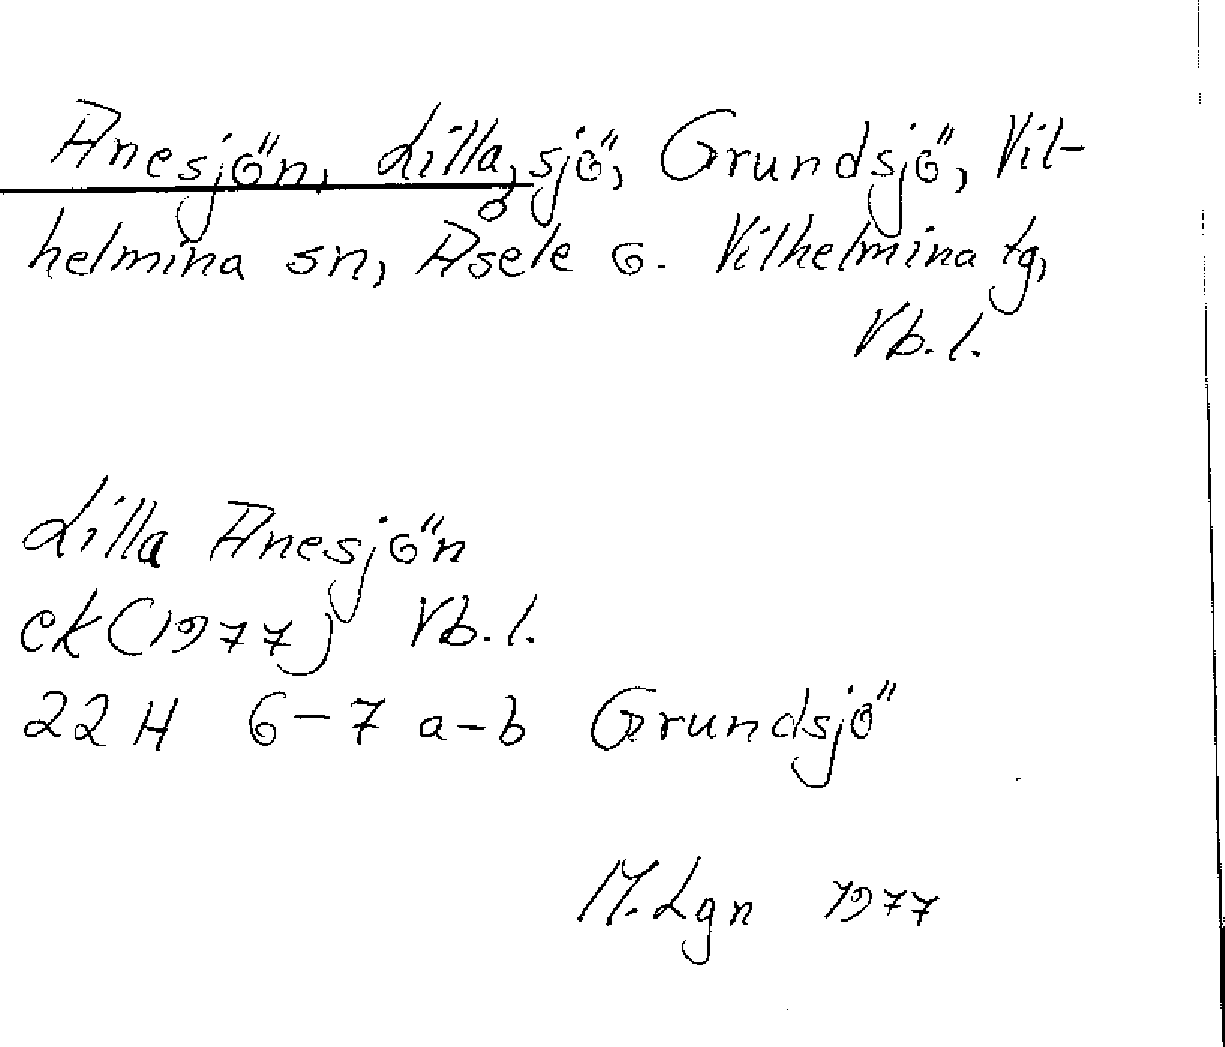 Anesjön, Lilla, sjö, Grundsjö, Vil-
helmina sn, Åsele o. Vilhelmina tg,
Vb. l.
Lilla Anesjön
ek (1977) Vb. l.
22 H 6-7 a-b Grundsjö
M. Lgn 1977